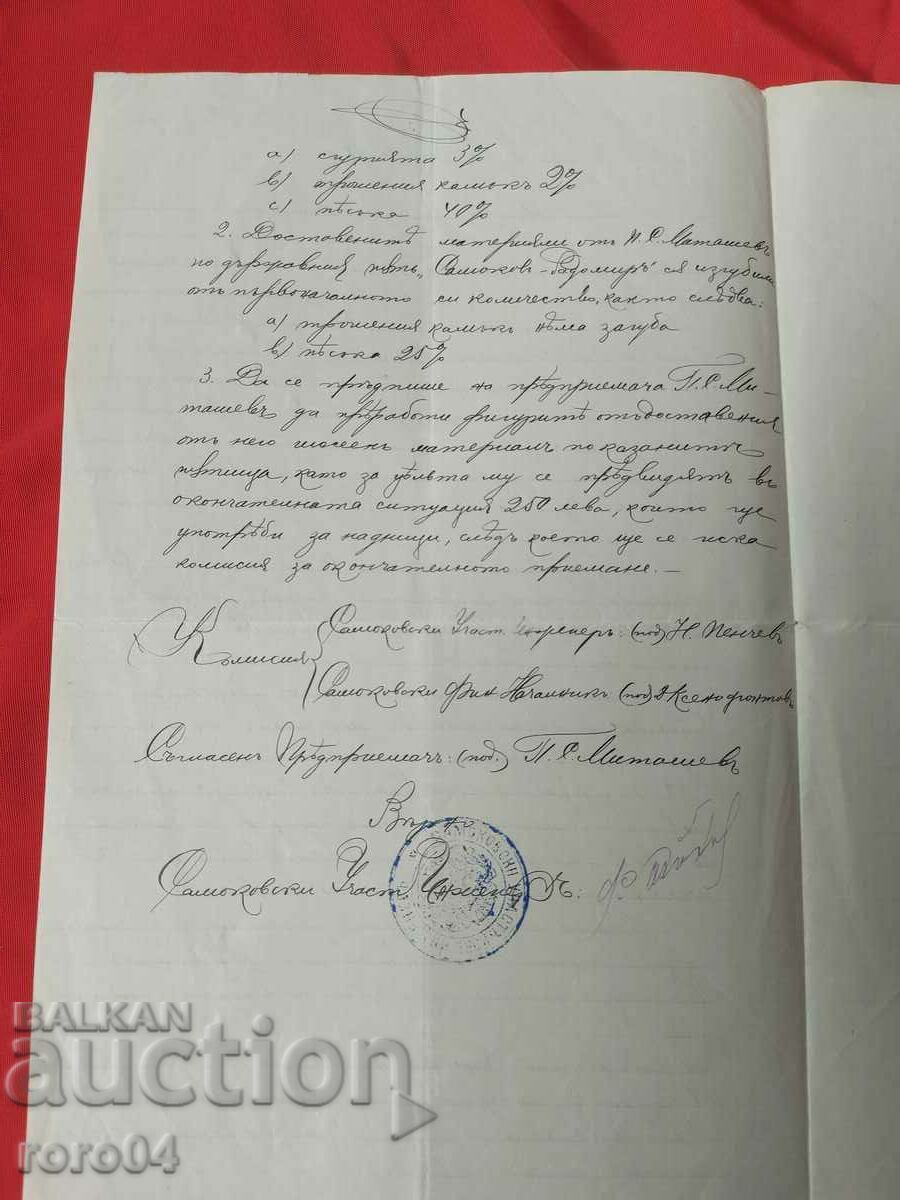 а) сгурията 3%
в) трошения камъкъ 2%
с) пѣсъка 40%
2. Доставенитѣ материяли отъ П. С. Миташевъ
по държавния пѫть „Самоков–Радомиръ" ся изгубили
отъ първоначалното си количество, както слѣдва:
а) трошения камъкъ нѣма загуба
в) пѣсъка 25%
3. Да се прѣдпише на прѣдприемача П. С. Ми-
ташевъ да прѣработи фигуритѣ отъ доставения
отъ него шосеенъ материалъ по казанитѣ
пѫтища, като за цѣльта му се прѣдвидятъ въ
окончателната ситуация 250 лева, които ще
употрѣби за надници, слѣдъ което ще се иска
комисия за окончателното приемане. —
Комисия
Самоковски Участ. Инженеръ: (под) Н. Пенчевъ
Самоковски Фин. Началникъ (под) Ксенофонтовъ
Съгласенъ Прѣдприемачъ: (под.) П. С. Миташевъ
Вѣрно
Самоковски Участ. Инженеръ:
САМОКОВСКИ УЧАСТ.
BALKAN
auction
roro04